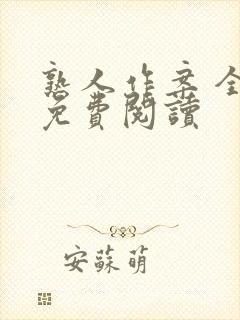 熟人作案全
免費閱讀
安蘇萌